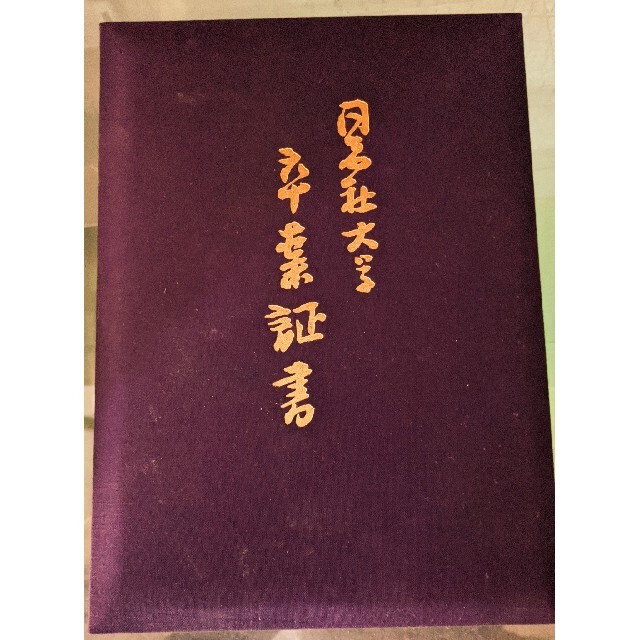 同志社大学
卒業証書